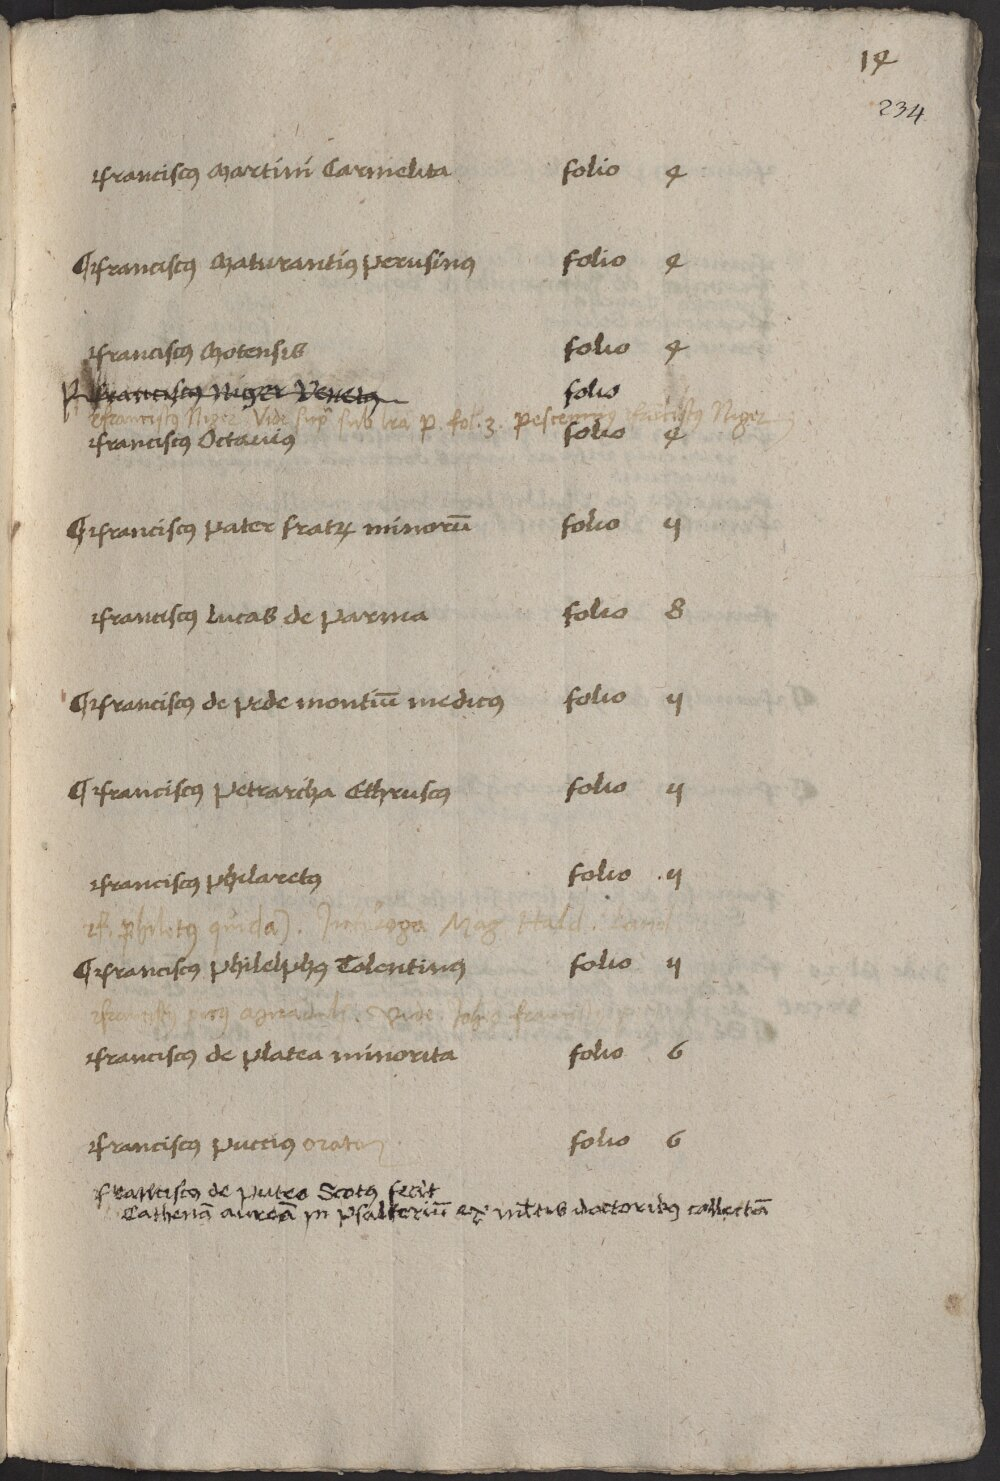 14
234
Franciscꝰ Martini Carmelita folio 4
¶ Franciscꝰ Maturantiꝰ Perusinꝰ folio 4
Franciscꝰ Motensis folio 4
Franciscꝰ Niger Venetꝰ folio
Franciscꝰ Niger Vide sup sub lra p. fol. 3. Franciscꝰ Niger
Franciscꝰ Octauiꝰ folio 4
¶ Franciscꝰ pater fratꝝ minorū folio 4
Franciscꝰ Lucas de Parma folio 8
¶ Franciscꝰ de pede montiū medicꝰ folio 4
¶ Franciscꝰ Petrarcha Ethruscꝰ folio 4
Franciscꝰ Philaretꝰ folio 4
F. philetꝰ Mag. Hald.
¶ Franciscꝰ Philelphꝰ Tolentinꝰ folio 4
Franciscꝰ picꝰ vide
Franciscꝰ de Platea minorita folio 6
Franciscꝰ Pucciꝰ orator folio 6
Franciscꝰ de Puteo Scotꝰ fecit
Cathenā aureā in psalteriū ex ml̄tis doctoribꝰ collectā